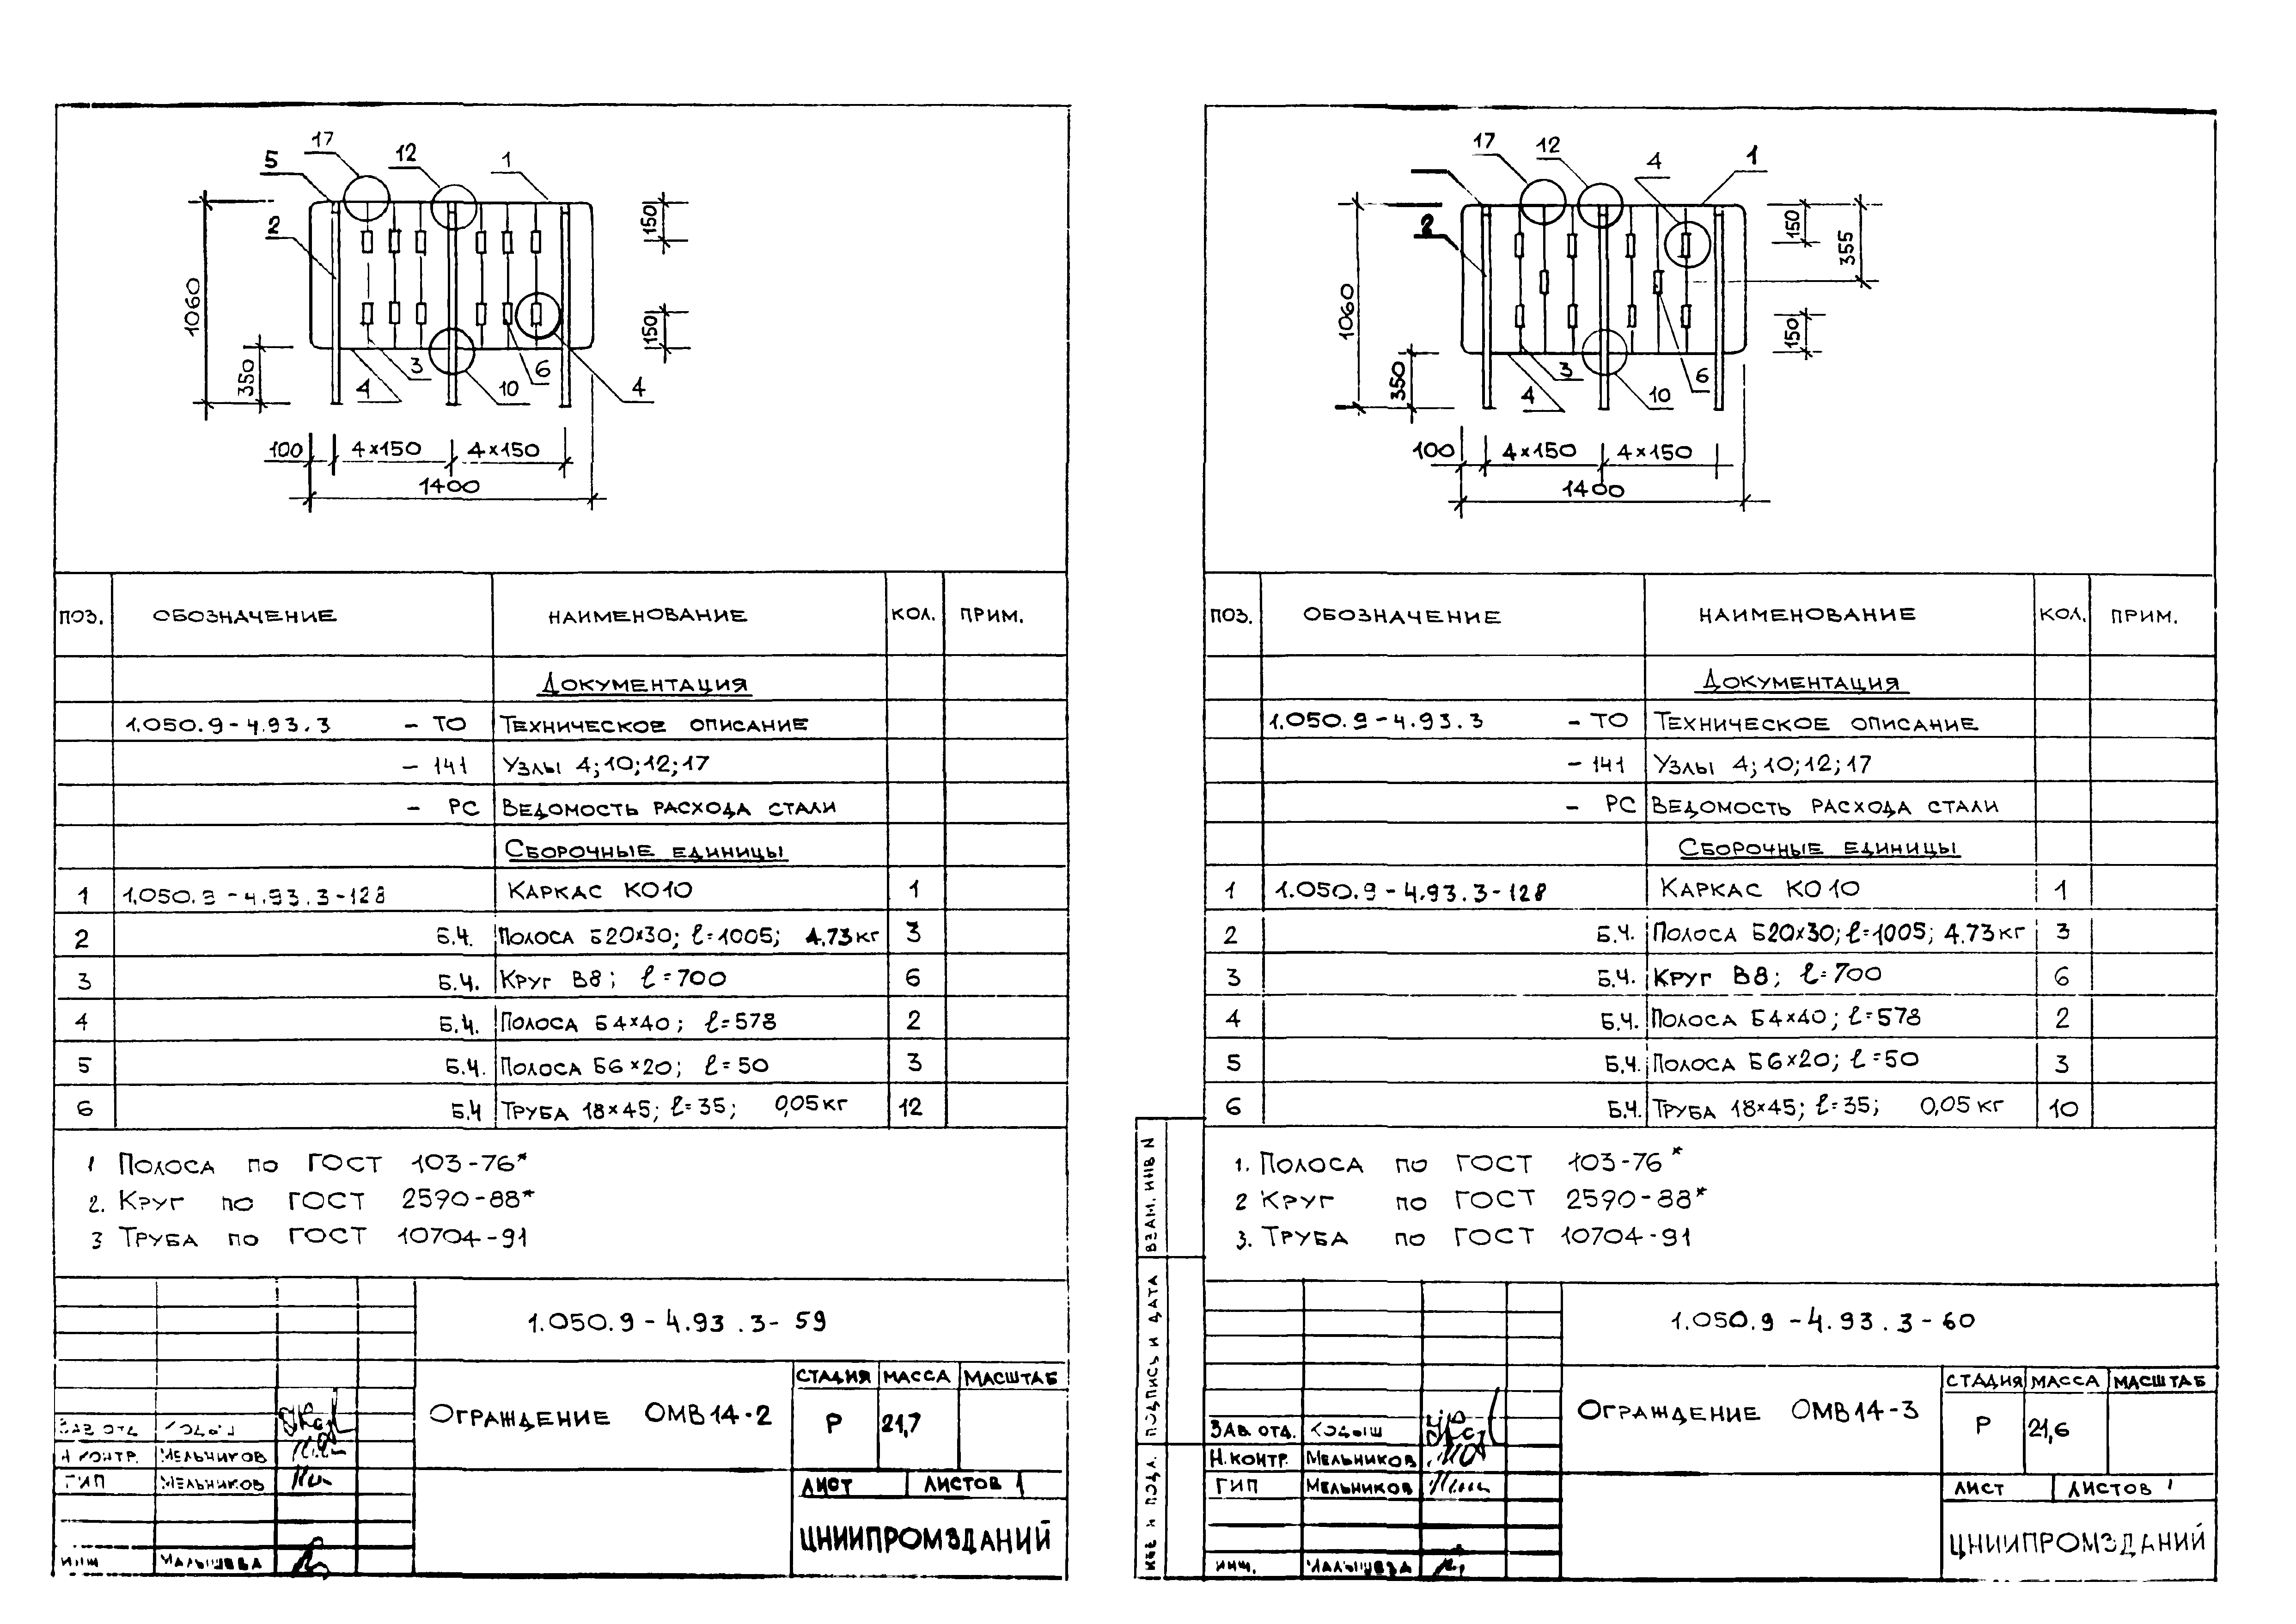 17
12
1
5
2
1060
350
150
150
3
4
10
6
4
100 4×150 4×150
1400
ПОЗ. ОБОЗНАЧЕНИЕ НАИМЕНОВАНИЕ КОЛ. ПРИМ.
ДОКУМЕНТАЦИЯ
1.050.9-4.93.3 - ТО ТЕХНИЧЕСКОЕ ОПИСАНИЕ
- 141 УЗЛЫ 4;10;12;17
- РС ВЕДОМОСТЬ РАСХОДА СТАЛИ
СБОРОЧНЫЕ ЕДИНИЦЫ
1 1.050.9-4.93.3-128 КАРКАС КО10 1
2 Б.Ч. ПОЛОСА Б20×30; ℓ=1005; 4.73кг 3
3 Б.Ч. КРУГ В8; ℓ=700 6
4 Б.Ч. ПОЛОСА Б4×40; ℓ=578 2
5 Б.Ч. ПОЛОСА Б6×20; ℓ=50 3
6 Б.Ч ТРУБА 18×45; ℓ=35; 0,05кг 12
1 ПОЛОСА ПО ГОСТ 103-76*
2. КРУГ ПО ГОСТ 2590-88*
3 ТРУБА ПО ГОСТ 10704-91
1.050.9-4.93.3-59
ОГРАЖДЕНИЕ ОМВ14-2
СТАДИЯ МАССА МАСШТАБ
Р 21,7
ЛИСТ ЛИСТОВ 1
ЦНИИПРОМЗДАНИЙ
ЗАВ ОТД
Н КОНТР. МЕЛЬНИКОВ
ГИП МЕЛЬНИКОВ
ИНЖ МАЛЫШЕВА
17
12
4
1
2
1060
350
150
355
150
3
4
10
6
100 4×150 4×150
1400
ПОЗ. ОБОЗНАЧЕНИЕ НАИМЕНОВАНИЕ КОЛ. ПРИМ.
ДОКУМЕНТАЦИЯ
1.050.9-4.93.3 - ТО ТЕХНИЧЕСКОЕ ОПИСАНИЕ
- 141 УЗЛЫ 4;10;12;17
- РС ВЕДОМОСТЬ РАСХОДА СТАЛИ
СБОРОЧНЫЕ ЕДИНИЦЫ
1 1.050.9-4.93.3-128 КАРКАС КО10 1
2 Б.Ч. ПОЛОСА Б20×30; ℓ=1005; 4.73кг 3
3 Б.Ч. КРУГ В8; ℓ=700 6
4 Б.Ч. ПОЛОСА Б4×40; ℓ=578 2
5 Б.Ч. ПОЛОСА Б6×20; ℓ=50 3
6 Б.Ч. ТРУБА 18×45; ℓ=35; 0,05кг 10
1. ПОЛОСА ПО ГОСТ 103-76*
2 КРУГ ПО ГОСТ 2590-88*
3. ТРУБА ПО ГОСТ 10704-91
1.050.9-4.93.3-60
ОГРАЖДЕНИЕ ОМВ14-3
СТАДИЯ МАССА МАСШТАБ
Р 21,6
ЛИСТ ЛИСТОВ 1
ЦНИИПРОМЗДАНИЙ
ЗАВ. ОТД. КОДЫШ
Н.КОНТР. МЕЛЬНИКОВ
ГИП МЕЛЬНИКОВ
ИНЖ. МАЛЫШЕВА
ВЗАМ. ИНВ N
ПОДПИСЬ И ДАТА
ИНВ N ПОДЛ.